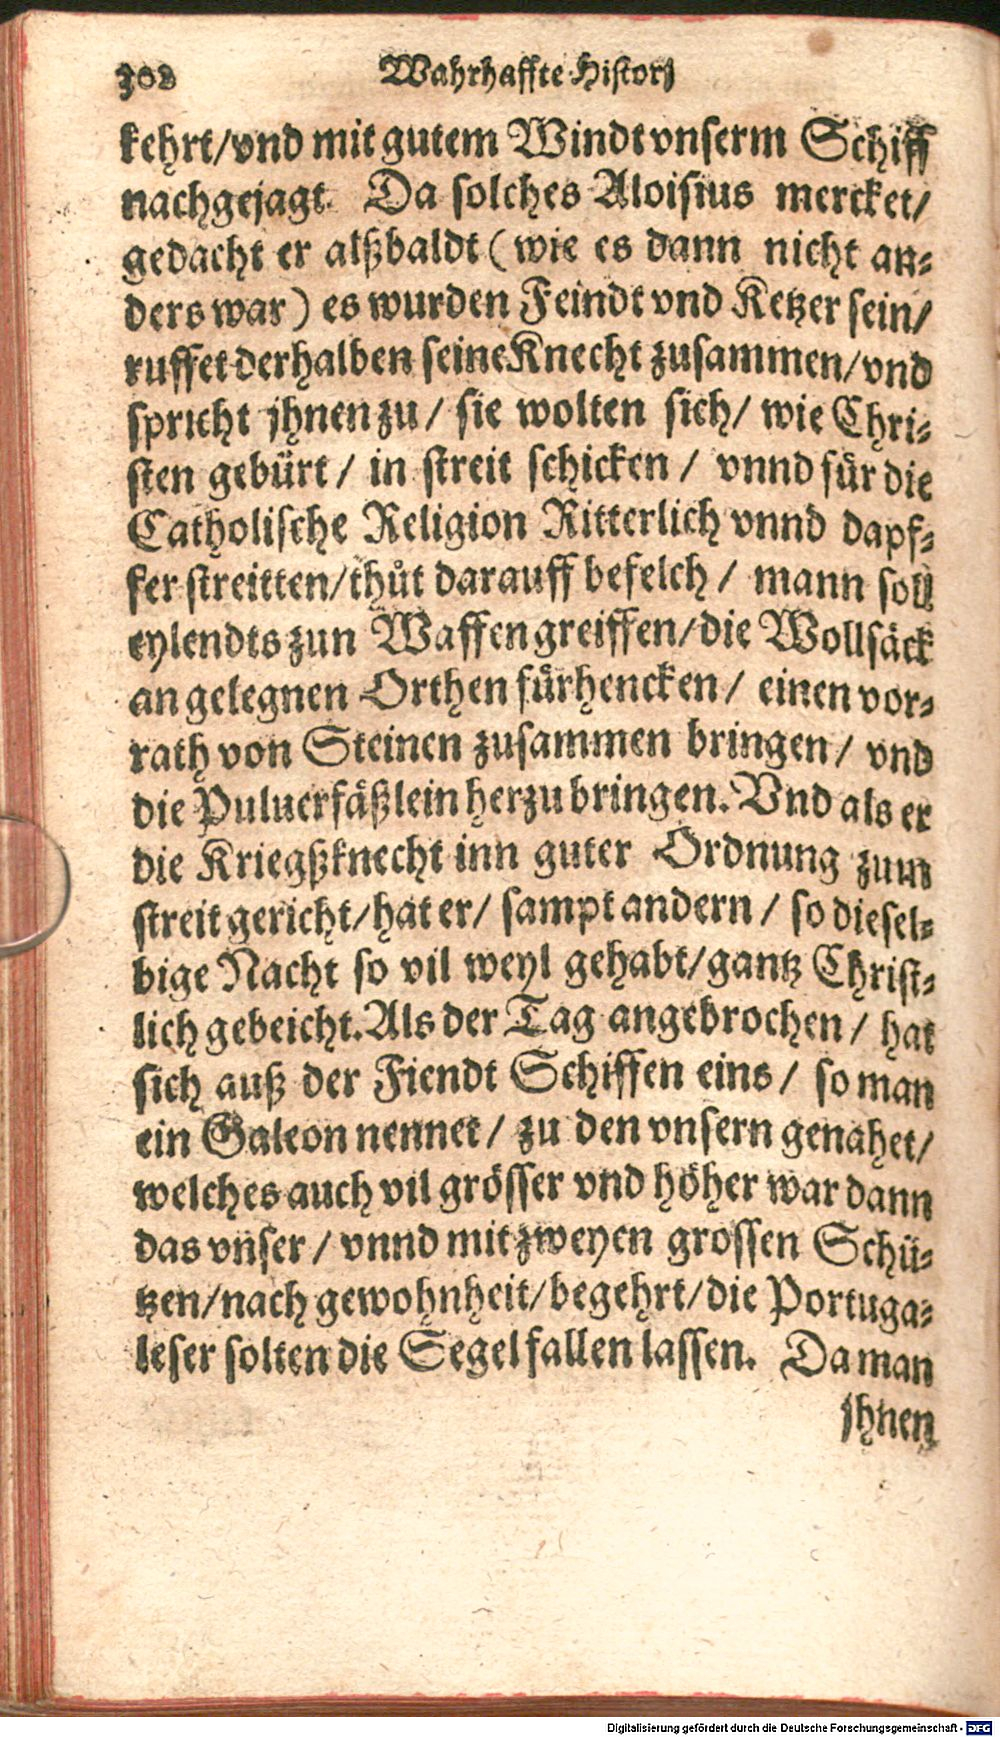 302 Wahrhaffte Histori
kehrt/vnd mit gutem Windt vnserm Schiff
nachgejagt. Da solches Aloisius mercket/
gedacht er alßbaldt (wie es dann nicht an-
ders war) es wurden Feindt vnd Ketzer sein/
ruffet derhalben seine Knecht zusammen/vnd
spricht jhnen zu/ sie wolten sich/ wie Chri-
sten gebürt/ in streit schicken/ vnnd für die
Catholische Religion Ritterlich vnnd dapf-
fer streitten/thůt darauff befelch/ mann soll
eylendts zun Waffen greiffen/die Wollsäck
an gelegnen Orthen fürhencken/ einen vor-
rath von Steinen zusammen bringen/ vnd
die Puluerfäßlein herzu bringen. Vnd als er
die Kriegßknecht inn guter Ordnung zum
streit gericht/hat er/ sampt andern/ so diesel-
bige Nacht so vil weyl gehabt/gantz Christ-
lich gebeicht. Als der Tag angebrochen/ hat
sich auß der Fiendt Schiffen eins/ so man
ein Galeon nennet/ zu den vnsern genahet/
welches auch vil grösser vnd höher war dann
das vnser/ vnnd mit zweyen grossen Schü-
tzen/nach gewohnheit/begehrt/die Portuga-
leser solten die Segel fallen lassen. Da man
jhnen
Digitalisierung gefördert durch die Deutsche Forschungsgemeinschaft - DFG